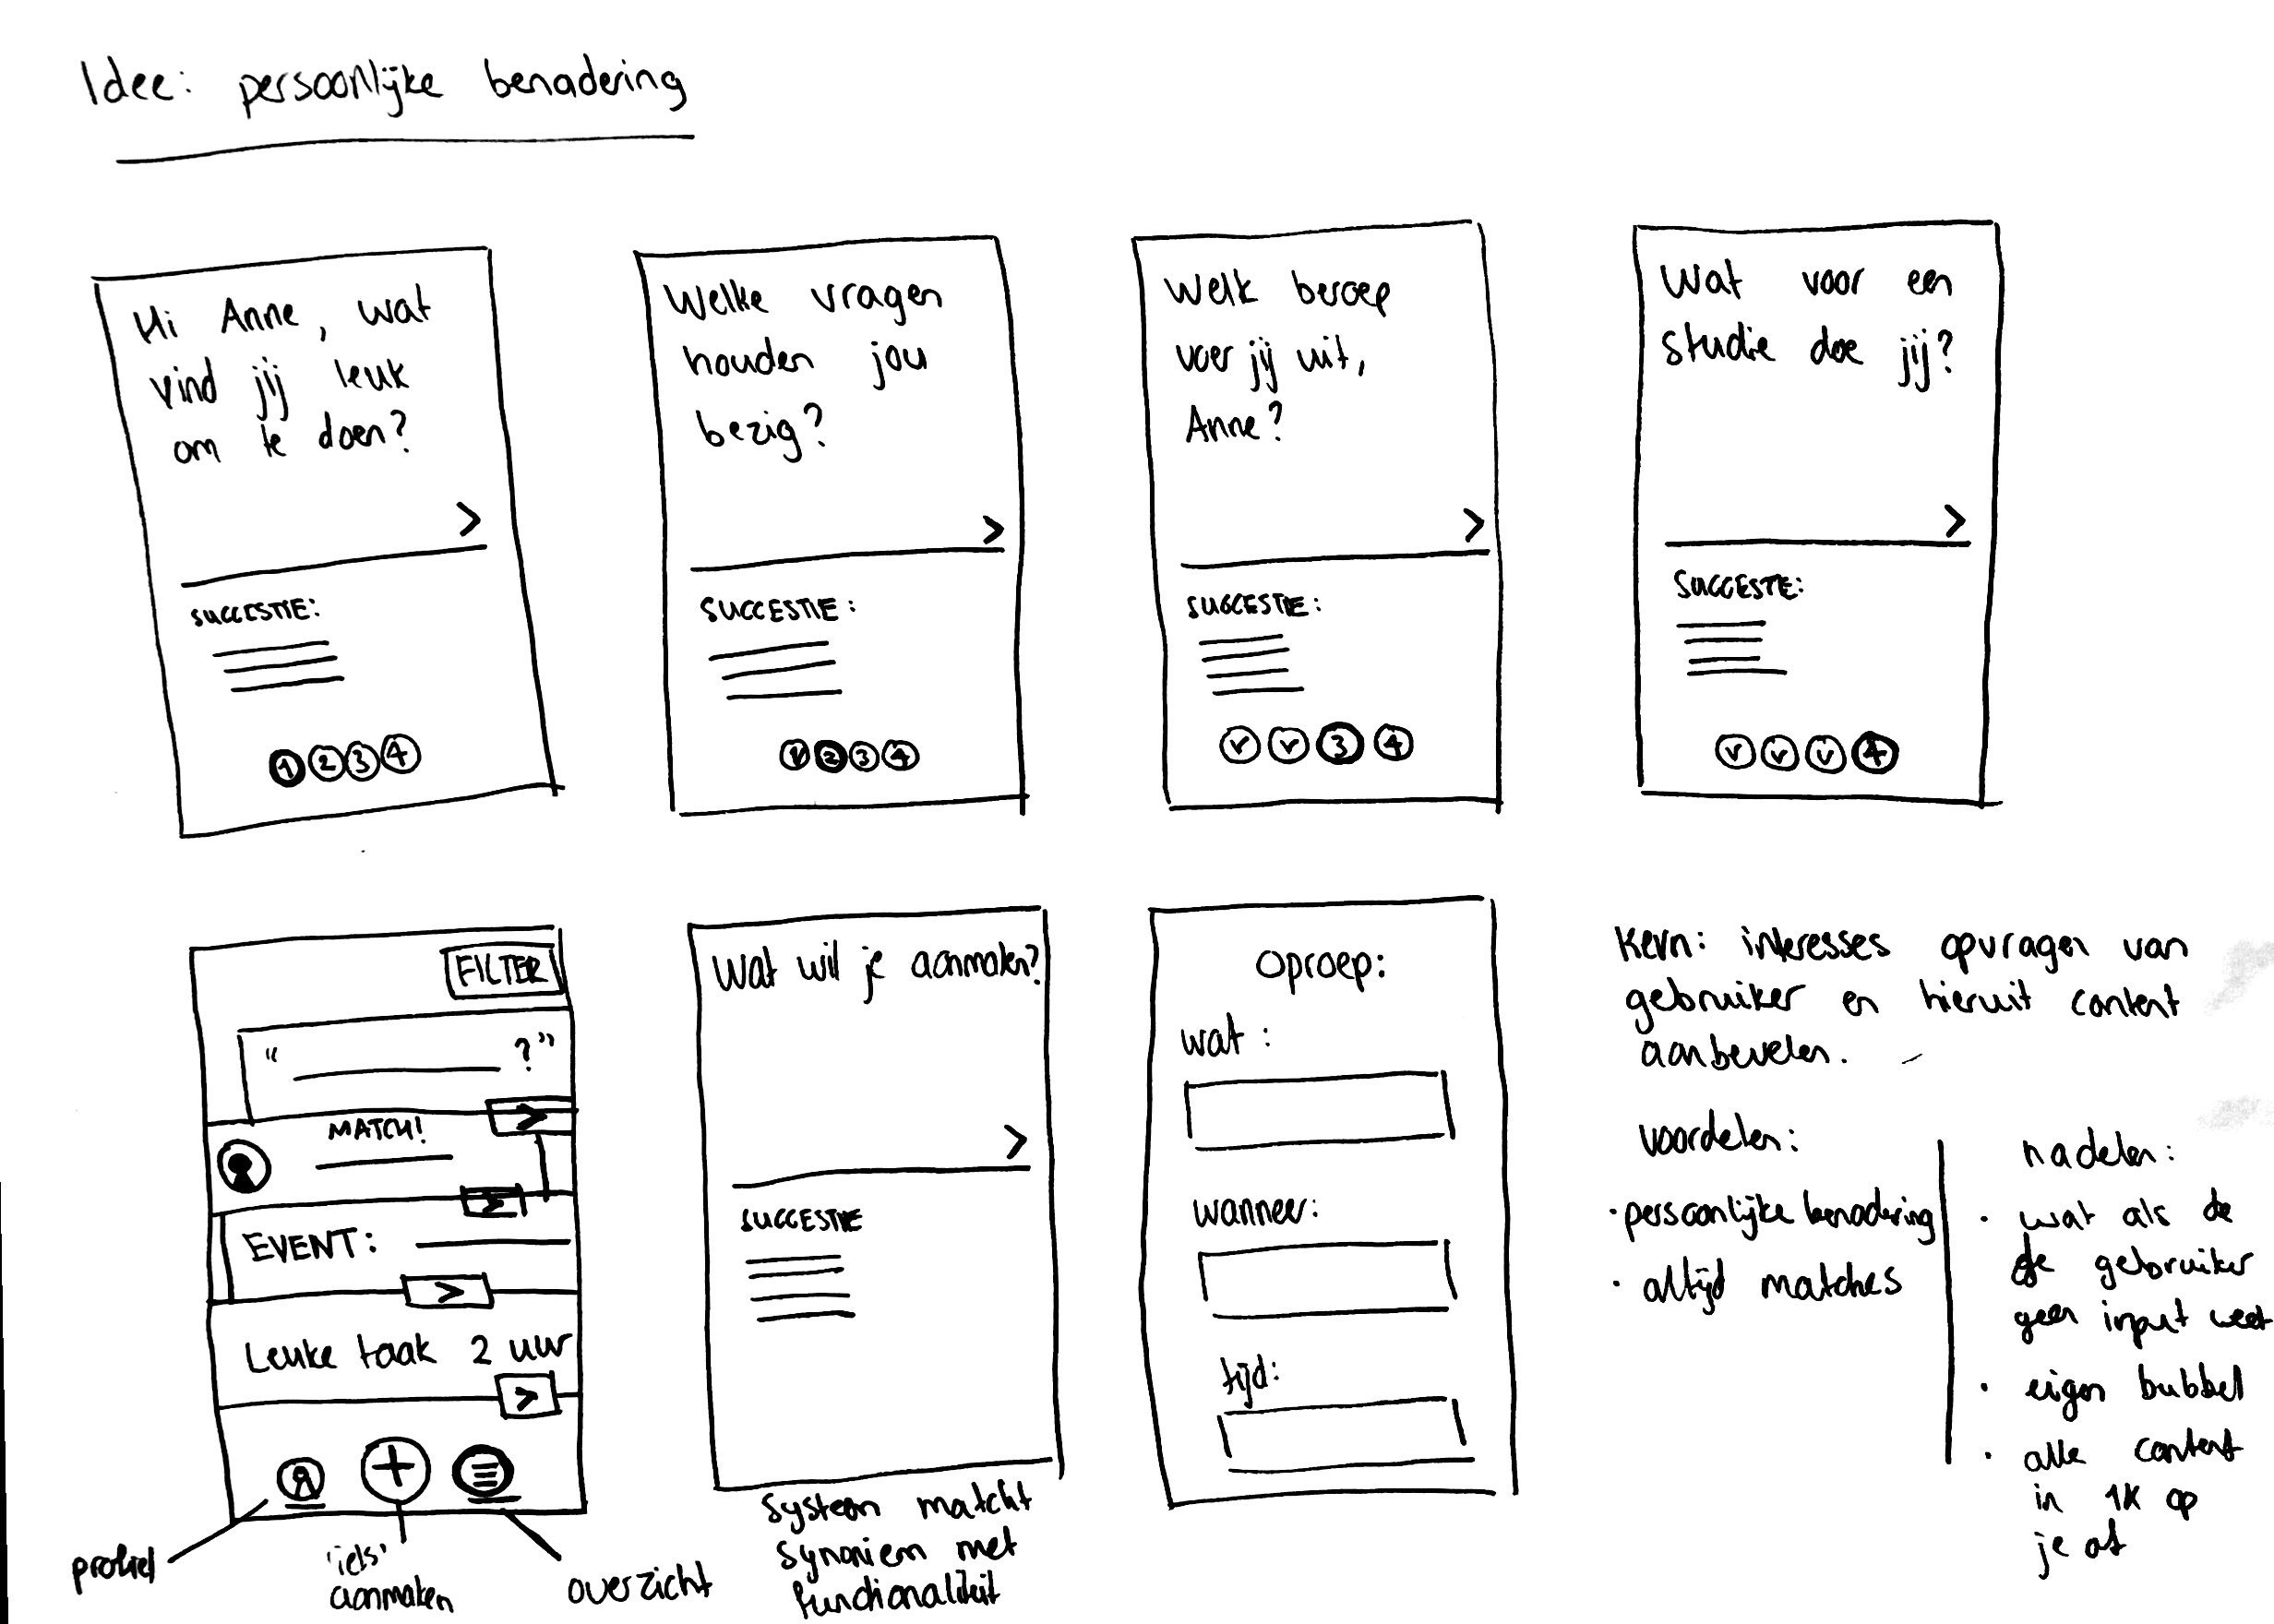 Idee: persoonlijke benadering
Hi Anne, wat
vind jij leuk
om te doen?
>
SUGGESTIE:
1 2 3 4
Welke vragen
houden jou
bezig?
>
SUGGESTIE:
1 2 3 4
Welk beroep
voer jij uit,
Anne?
>
SUGGESTIE:
v v 3 4
Wat voor een
studie doe jij?
>
SUGGESTIE:
v v v 4
FILTER
" ?"
>
MATCH!
>
EVENT:
>
Leuke taak 2 uur
>
+
profiel
'iets'
aanmaken
overzicht
Wat wil je aanmaken?
>
SUGGESTIE
Systeem matcht
synoniem met
functionaliteit
Oproep:
wat:
wanneer:
tijd:
Kern: interesses opvragen van
gebruiker en hieruit content
aanbevelen.
voordelen:
• persoonlijke benadering
• altijd matches
nadelen:
• wat als de
de gebruiker
geen input weet
• eigen bubbel
• alle content
in 1K op
je af